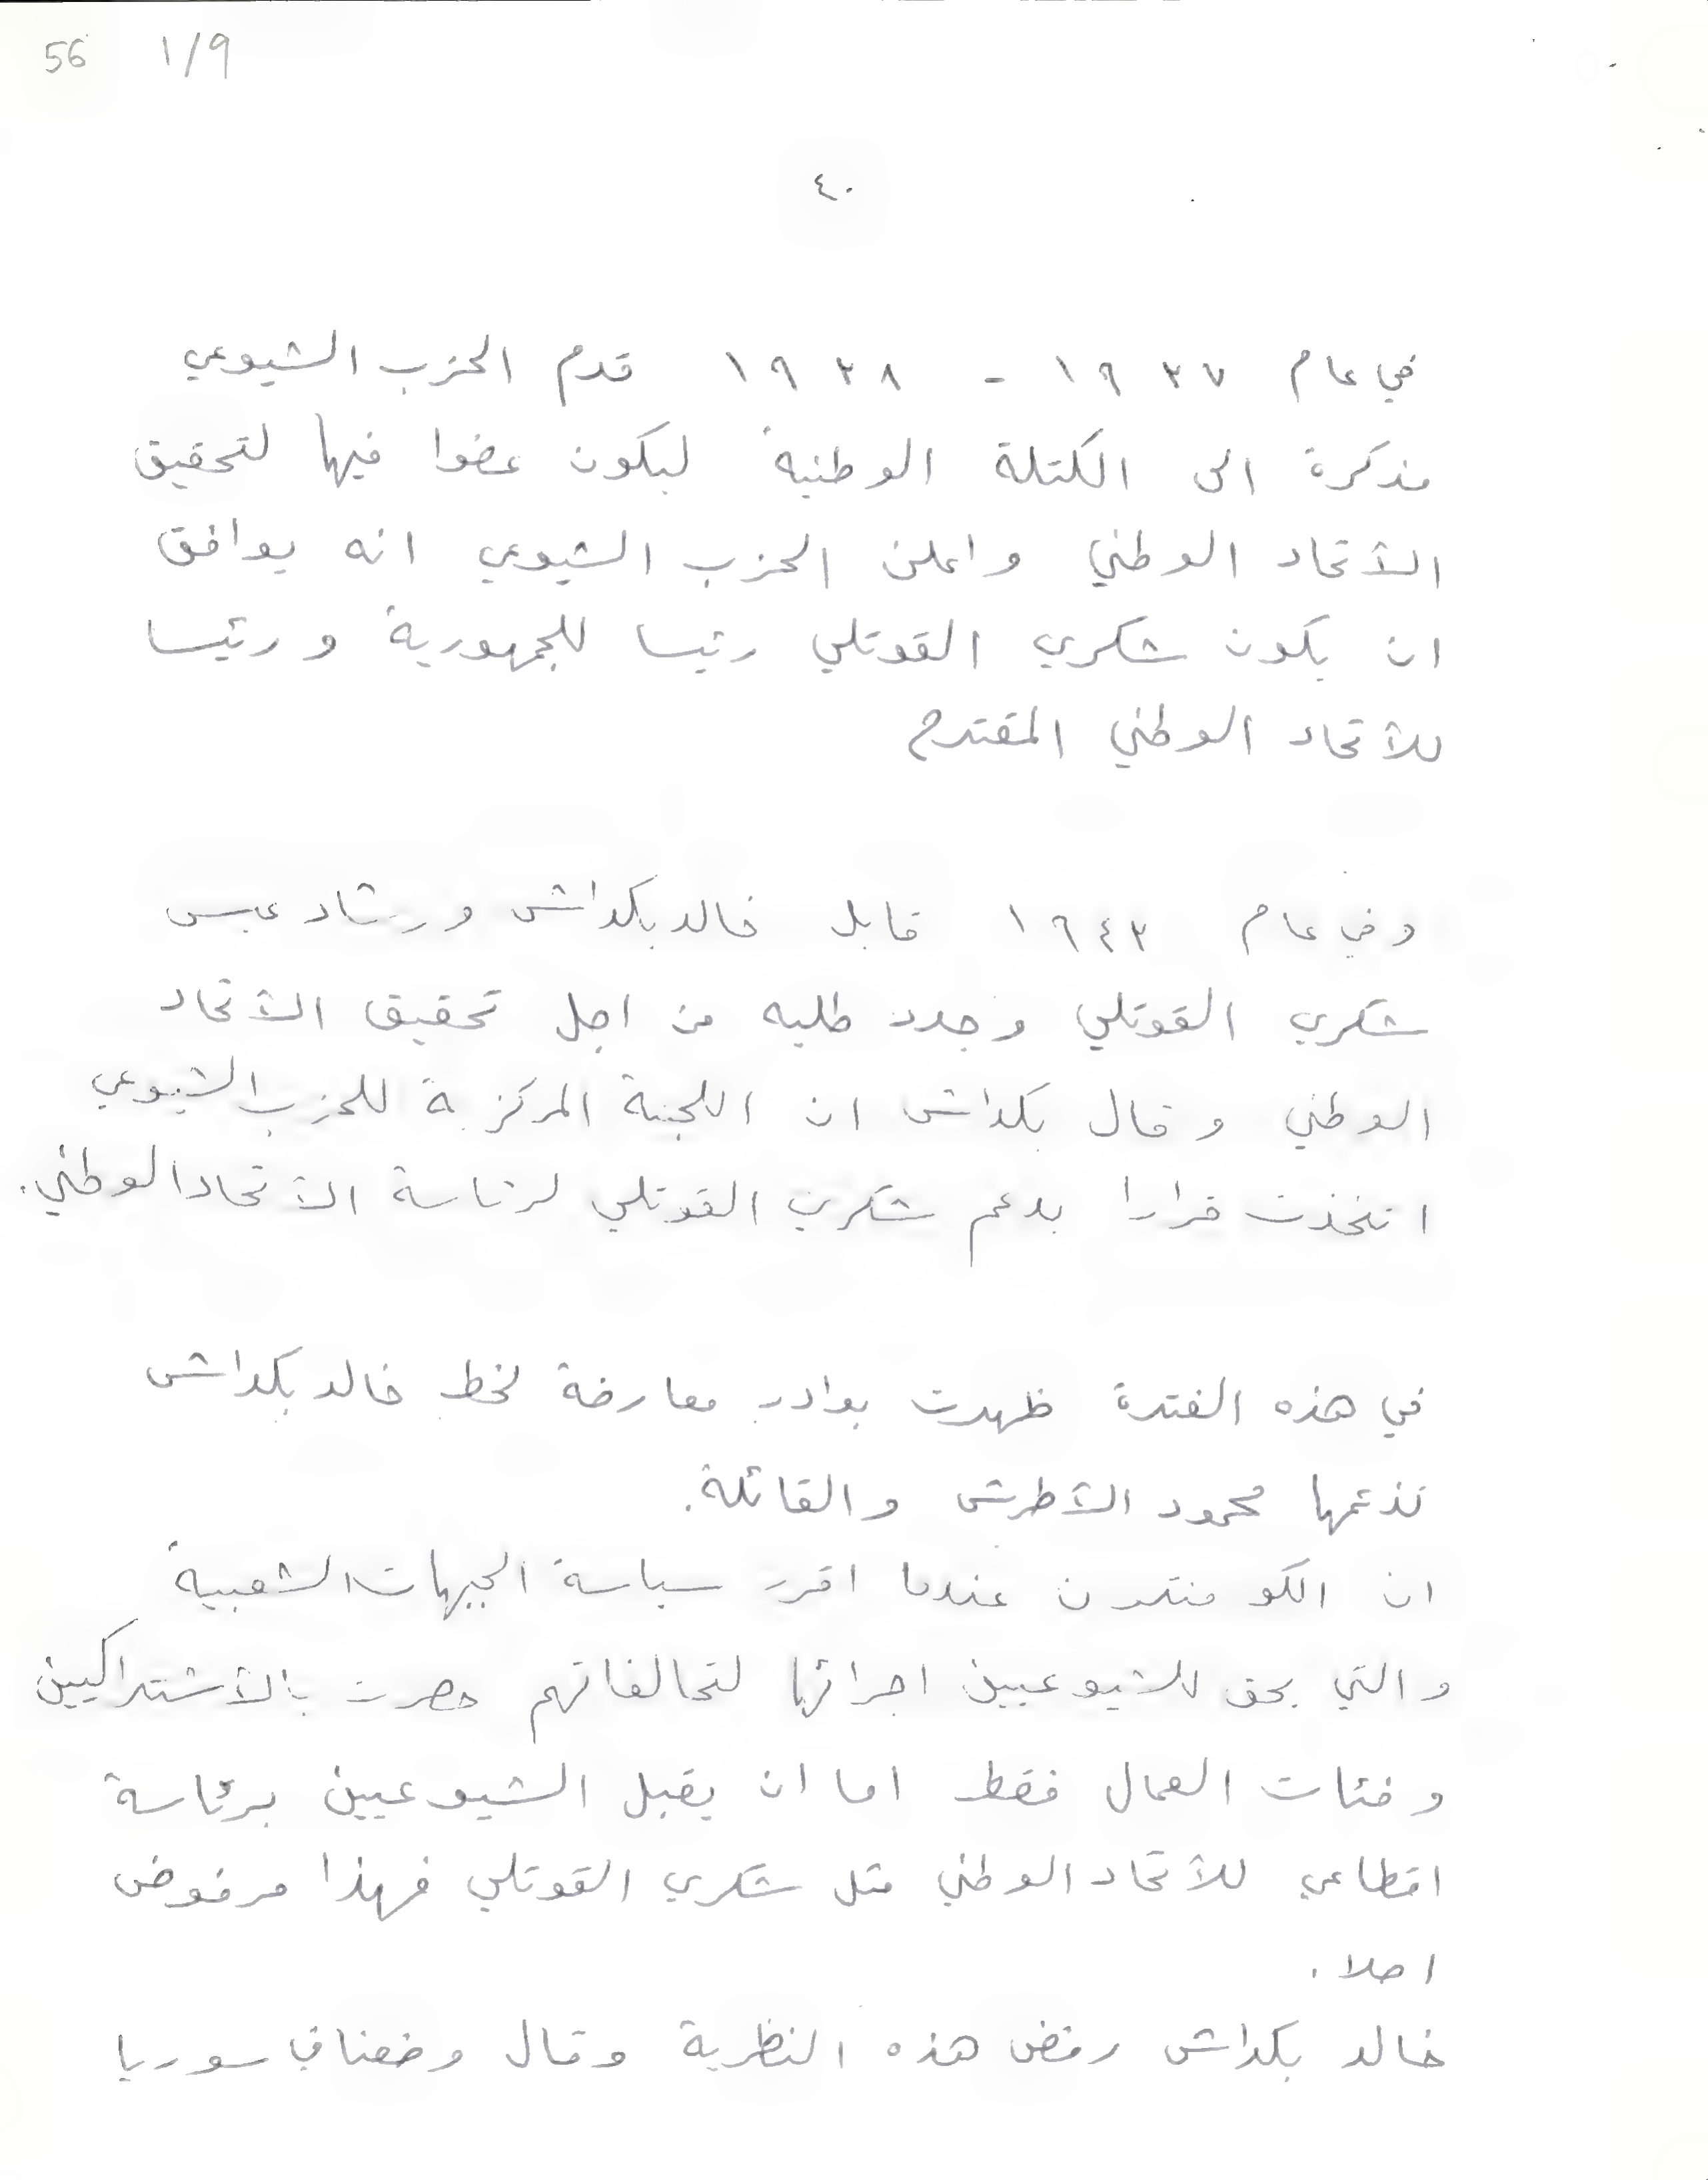 56 1/9
٤٠
في عام ١٩٣٧ - ١٩٣٨ قدم الحزب الشيوعي
مذكرة الى الكتلة الوطنية ليكون عضوا فيها لتحقيق
الأتحاد الوطني واعلن الحزب الشيوعي انه يوافق
ان يكون شكري القوتلي رئيسا للجمهورية ورئيسا
للأتحاد الوطني المقترح
وفي عام ١٩٤٣ قابل خالد بكداش ورشاد عيسى
شكري القوتلي وجدد طلبه من اجل تحقيق الأتحاد
الوطني وقال بكداش ان اللجنة المركزية للحزب الشيوعي
اتخذت قرارا بدعم شكري القوتلي لرئاسة الأتحاد الوطني.
في هذه الفترة ظهرت بوادر معارضة لخط خالد بكداش
تزعمها محمود الأطرش والقائلة.
ان الكومنترن عندما اقرت سياسة الجبهات الشعبية
والتي يحق للشيوعيين اجرائها لتحالفاتهم حصرت بالأشتراكيين
وفئات العمال فقط اما ان يقبل الشيوعيين برئاسة
اقطاعي للأتحاد الوطني مثل شكري القوتلي فهذا مرفوض
اصلا.
خالد بكداش رفض هذه النظرية وقال وضعنا في سوريا